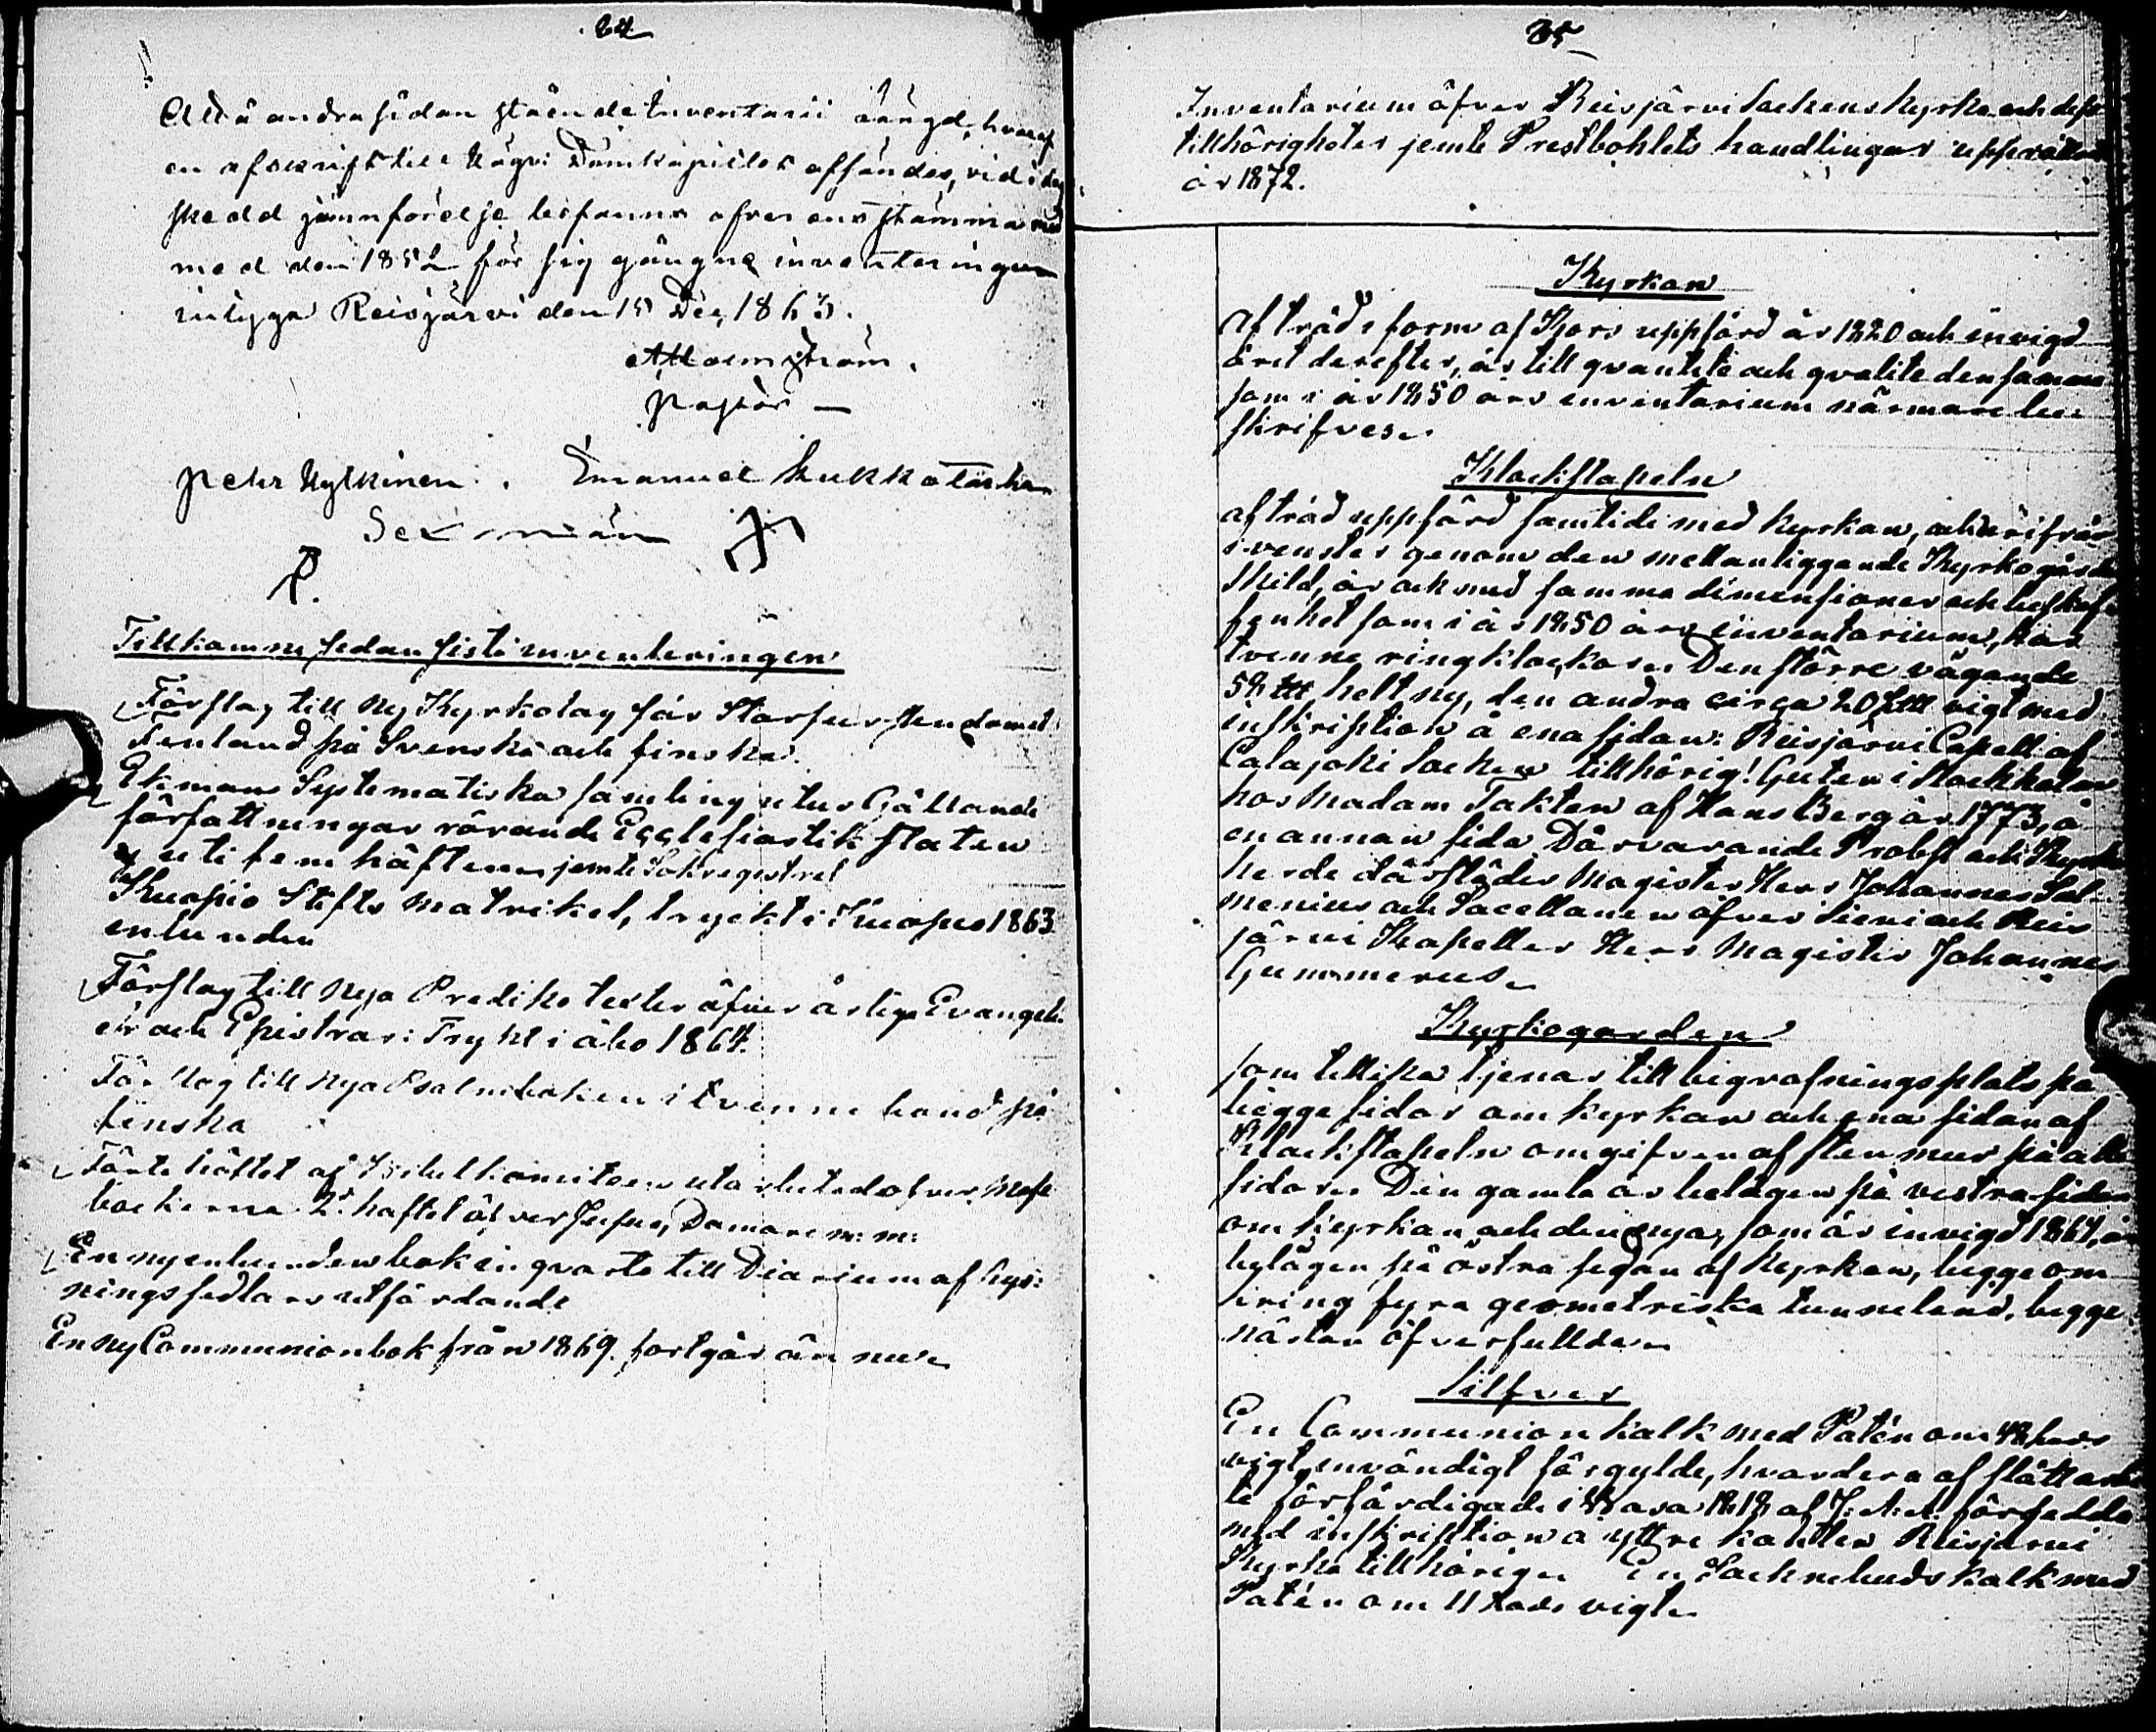 24
Att å andra sidan stående Inventarii längd, hvaraf
en afskrift till högv. Domkapitlet afsändes, vid i dag
skedd jämnförelse befunnits öfverensstämma med
med den 1852 för sig gångna inventeringen
intyga Reisjärvi den 15 Dec. 1863.
A. Holmström.
Pastor
Pehr Kytkinen. Emanuel Kukko
Sexmän
P.
Tillkomne sedan sista inventeringen
Förslag till Ny Kyrkolag för Storfurstendömet
Finland på Svenska och finska.
Ekmans Systematiska samling utur Gällande
författningar rörande Ecclesiastik staten
uti fem häften jemte Sökregistret
Kuopio Stifts Matrikel, tryckt i Kuopio 1863
inbunden
Förslag till Nya Predikotexter öfver årliga Evangeli-
er och Epistlar: Tryckt i Åbo 1864.
Förslag till Nya Psalmboken i tvenne band på
finska
Första häftet af Bibelkomiteen utarbetad öfver Mose
böckerna 2. häftet öfver Josua, Domare m. m.
En ny inbunden bok in qvarto till Diarium af lys-
ningssedlars utfärdande
En ny Communionbok från 1869. fortgår än nu.
25
Inventarium öfver Reisjärvi Sockens Kyrka och dess
tillhörigheter jemte Prestbohlets handlingar upprättat
år 1872.
Kyrkan
Af träd i form af Kors uppförd år 1820 och invigd
året derefter, är till qvantité och qvalité densamma
som i år 1850 års inventarium närmare be-
skrifves.
Klockstapeln
af träd uppförd samtidi med Kyrkan, och derifrån
i venster genom den mellanliggande Kyrkogården
skild, är och med samma dimensioner och beskaf-
fenhet som i år 1850 års inventarium, har
tvenne ringklockor. Den större vägande
58 helt ny, den andra circa 20 vigt med
inskription å ena sidan: Reisjärvi Capell af
Calajoki Socken tillhörig! Guten i Stockholm
hos Madam Takten af Hans Berg år 1773, å
en annan sida Då varande Probst och Kyrko
herde därstädes Magister Herr Johannes Sal-
menius och Sacellanen öfver Sievi och Reis
järvi Kapeller Herr Magister Johannes
Gummerus.
Kyrkogården
som tillika tjenar till begrafningsplats på
begge sidor om kyrkan och ena sidan af
Klockstapeln omgifven af stenmur på alla
sidor. Den gamla är belägen på vestra sidan
om kyrkan och den nya, som är invigd 1864, är
belägen på östra sidan af Kyrkan, begge om-
kring fyra geometriska tunneland, begge
nästan öfverfullda.
Silfver
En Communion kalk med Patén om 48 lods
vigt, invändigt förgylde, hvardera af slätt arbe-
te förfärdigade i Wasa 1818 af försedda
med inskription å yttre kanten Reisjärvi
Kyrka tillhörig. En Sockenbuds kalk med
Patén om 11 lods vigt.